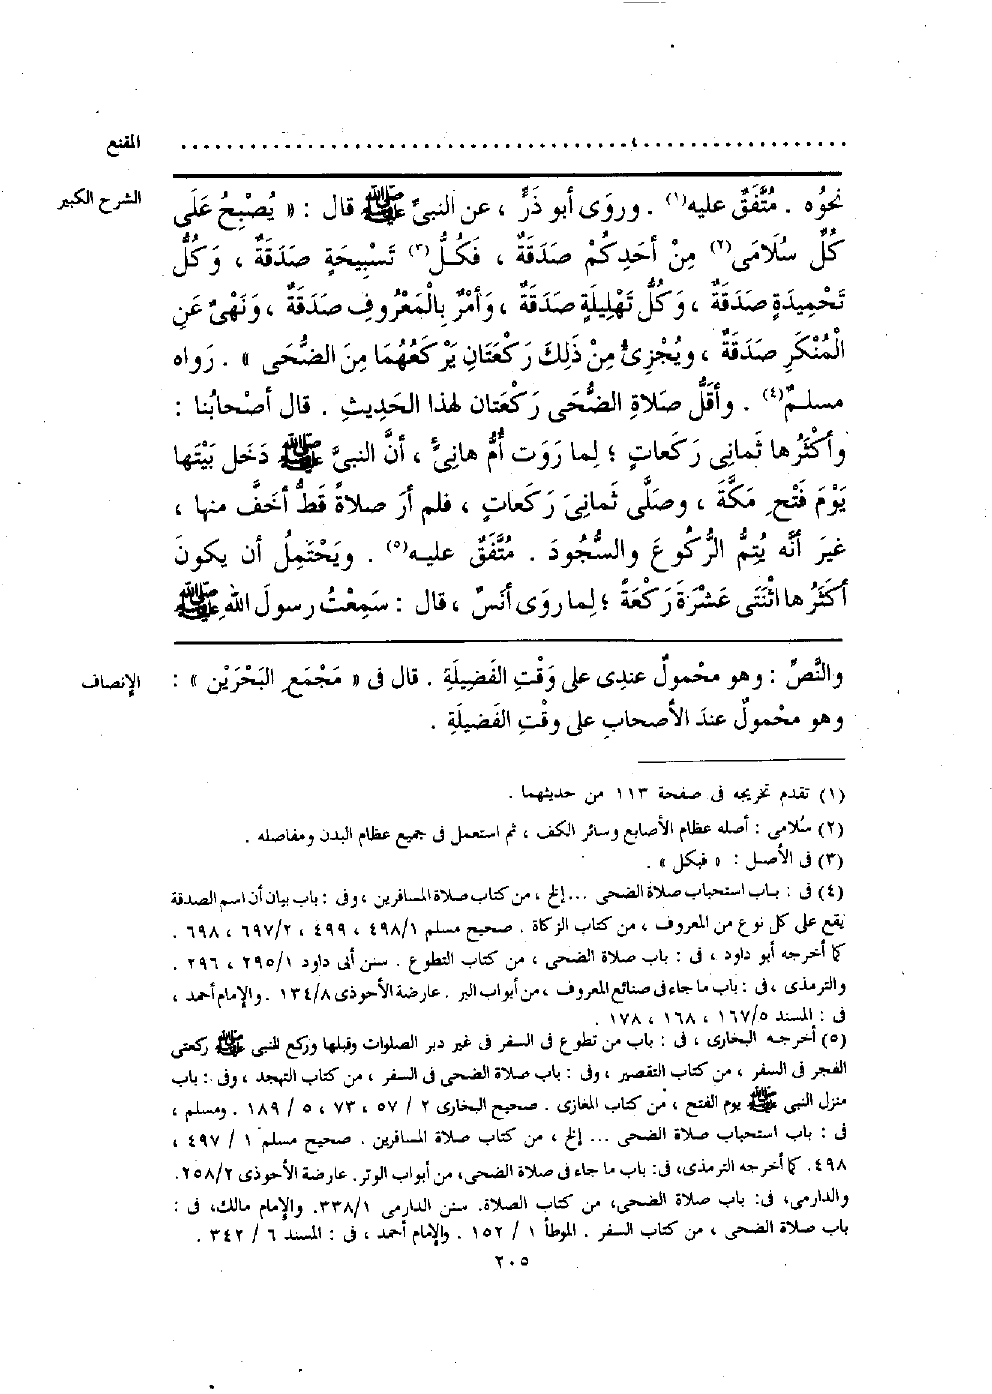 المقنع ................................................
الشرح الكبير نحوُه . مُتَّفَقٌ عليه(١) . وروَى أبو ذَرٍّ ، عن النبىِّ ﷺ قال : « يُصْبِحُ عَلَى
كُلِّ سُلَامَى(٢) مِنْ أحَدِكُمْ صَدَقَةٌ ، فَكُلُّ(٣) تَسْبِيحَةٍ صَدَقَةٌ ، وَكُلُّ
تَحْمِيدَةٍ صَدَقَةٌ ، وَكُلُّ تَهْلِيلَةٍ صَدَقَةٌ ، وَأمْرٌ بِالْمَعْرُوفِ صَدَقَةٌ ، وَنَهْىٌ عَنِ
الْمُنْكَرِ صَدَقَةٌ ، ويُجْزِئُ مِنْ ذَلِكَ رَكْعَتَانِ يَرْكَعُهُمَا مِنَ الضُّحَى » . رَواه
مسلمٌ(٤) . وأقَلُّ صَلاةِ الضُّحَى رَكْعَتان لهذا الحَدِيثِ . قال أصْحابُنا :
وأكْثَرُها ثَمانِى رَكَعاتٍ ؛ لِما رَوَت أُمُّ هانِئٍ ، أنَّ النبىَّ ﷺ دَخَل بَيْتَها
يَوْمَ فَتْحِ مَكَّةَ ، وصَلَّى ثَمانِىَ رَكَعاتٍ ، فلم أرَ صلاةً قَطُّ أخَفَّ منها ،
غيرَ أنَّه يُتِمُّ الرُّكُوعَ والسُّجُودَ . مُتَّفَقٌ عليه(٥) . ويَحْتَمِلُ أن يكونَ
أكثَرُها اثْنَتَى عَشْرَةَ رَكْعَةً ؛ لِما روَى أنَسٌ ، قال : سَمِعْتُ رسولَ اللهِ ﷺ
الإنصاف والنَّصِّ : وهو محْمولٌ عندِى على وَقْتِ الفَضِيلَةِ . قال فى « مَجْمَعِ البَحْرَيْن » :
وهو محْمولٌ عندَ الأصحابِ على وقْتِ الفَضِيلَةِ .
(١) تقدم تخريجه فى صفحة ١١٣ من حديثهما .
(٢) سُلامى : أصله عظام الأصابع وسائر الكف ، ثم استعمل فى جميع عظام البدن ومفاصله .
(٣) فى الأصل : « فبكل » .
(٤) فى : باب استحباب صلاة الضحى ... إلخ ، من كتاب صلاة المسافرين ، وفى : باب بيان أن اسم الصدقة
يقع على كل نوع من المعروف ، من كتاب الزكاة . صحيح مسلم ٤٩٨/١ ، ٤٩٩ ، ٦٩٧/٢ ، ٦٩٨ .
كما أخرجه أبو داود ، فى : باب صلاة الضحى ، من كتاب التطوع . سنن أبى داود ٢٩٥/١ ، ٢٩٦ .
والترمذى ، فى : باب ما جاء فى صنائع المعروف ، من أبواب البر . عارضة الأحوذى ١٣٤/٨ . والإمام أحمد ،
فى : المسند ١٦٧/٥ ، ١٦٨ ، ١٧٨ .
(٥) أخرجه البخارى ، فى : باب من تطوع فى السفر فى غير دبر الصلوات وقبلها وركع للنبى ﷺ ركعتى
الفجر فى السفر ، من كتاب التقصير ، وفى : باب صلاة الضحى فى السفر ، من كتاب التهجد ، وفى : باب
منزل النبى ﷺ يوم الفتح ، من كتاب المغازى . صحيح البخارى ٢ / ٥٧ ، ٧٣ ، ٥ / ١٨٩ . ومسلم ،
فى : باب استحباب صلاة الضحى ... إلخ ، من كتاب صلاة المسافرين . صحيح مسلم ١ / ٤٩٧ ،
٤٩٨. كما أخرجه الترمذى، فى: باب ما جاء فى صلاة الضحى، من أبواب الوتر. عارضة الأحوذى ٢٥٨/٢.
والدارمى، فى: باب صلاة الضحى، من كتاب الصلاة. سنن الدارمى ٣٣٨/١. والإمام مالك، فى :
باب صلاة الضحى ، من كتاب السفر . الموطأ ١ / ١٥٢ . والإمام أحمد ، فى : المسند ٦ / ٣٤٢ .
٢٠٥